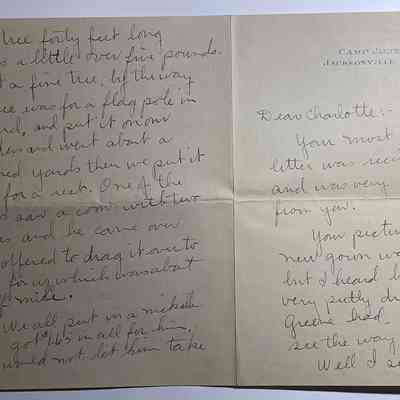 tree forty feet long
s a little over five pounds.
t a fine tree, by the way
ee was for a flag pole in
rd, and put it on our
ders and went about a
red yards then we put it
for a rest. One of the
s saw a coon with two
s and he came over
offered to drag it over to
for us which was about
f mile.
We all put in a nickel
got $1.65 in all for him,
would not let him take
CAMP
JACKSONVILLE
Dear Charlotte:-
Your most
letter was
and was very
from you.
Your
new gown
but I heard
very
Greene had
see the way
Well I